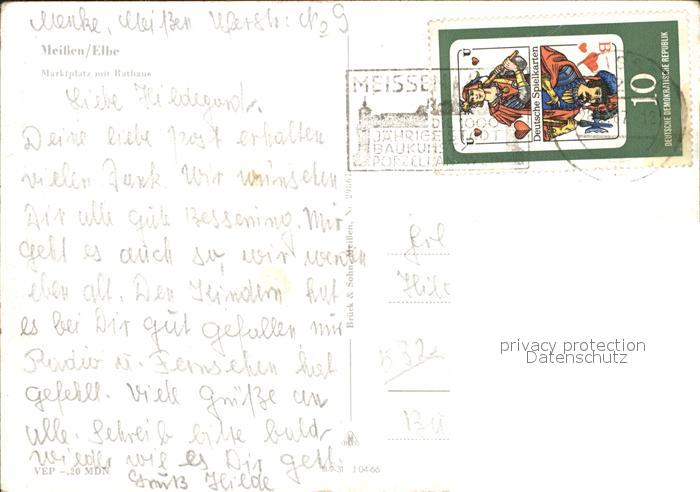 Menke, Meißen
Meißen/Elbe
Marktplatz mit Rathaus
Liebe Hildegard.
Deine liebe Post erhalten
vielen Dank. Wir wünschen
Dir alle gute Besserung. Mir
geht es auch so, wir werden
eben alt. Den Kindern hat
es bei Dir gut gefallen nur
Radio u. Fernsehen hat
gefehlt. Viele Grüße an
alle. Schreib bitte bald
wieder wie es Dir geht.
Gruß Hilde
VEP -,20 MDN
J 04-66
Brück & Sohn, Meißen, Nr.
MEISSEN
JÄHRIGE STADT
BAUKUNST
PORZELLAN
U
B
Deutsche Spielkarten
10
DEUTSCHE DEMOKRATISCHE REPUBLIK
Hild
532
Bu
privacy protection
Datenschutz